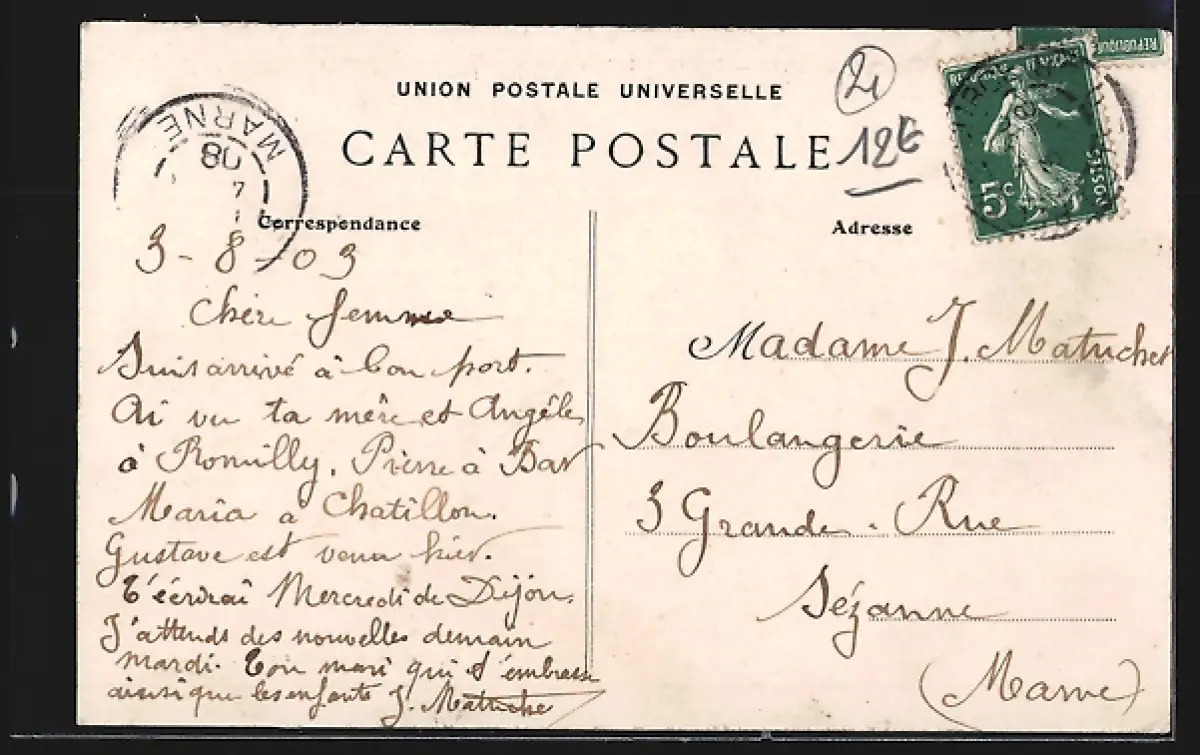 UNION POSTALE UNIVERSELLE
CARTE POSTALE
12€
RÉPUBLIQUE
5c
POSTES
MARNE
08
7
Correspondance
Adresse
3-8-03
Chère femme
Suis arrivé à bon port.
Ai vu ta mère et Angèle
à Romilly. Pierre à Bar
Maria à Chatillon.
Gustave est venu hier.
T'écrirai Mercredi de Dijon.
J'attends des nouvelles demain
mardi. Ton mari qui t'embrasse
ainsi que les enfants J. Matuchet
Madame J. Matuchet
Boulangerie
3 Grande-Rue
Sézanne
(Marne)